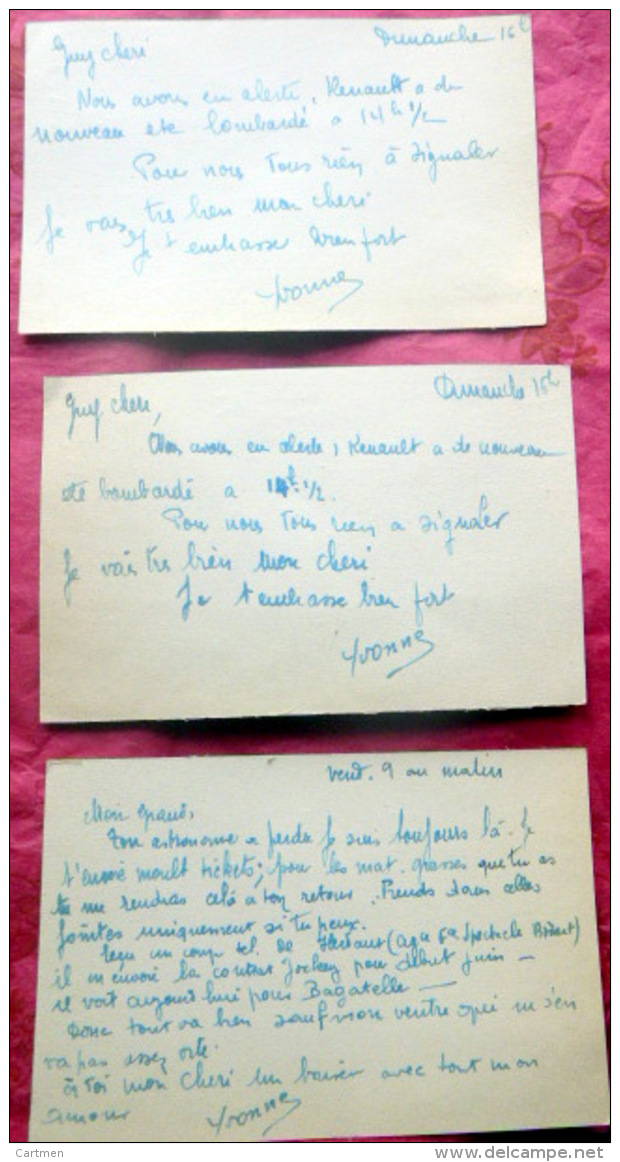 Guy cheri
Dimanche 16h
Nous avons eu alerte, Renault a de
nouveau ete bombardé a 14h 1/2
Pour nous Tous rien à signaler
Je vais tres bien mon cheri
Je t embrasse bien fort
Yvonne
Guy cheri,
Dimanche 16h
Nous avons eu alerte, Renault a de nouveau
ete bombardé a 14h. 1/2.
Pour nous Tous rien a signaler
Je vais tres bien mon cheri
Je t embrasse bien fort
Yvonne
vend. 9 au matin
Mon grand,
Ton astronome a perdu je suis toujours là. Je
t'envoie moult tickets; pour les mat. grasses que tu as
tu me rendras celà a ton retour. Prends dans celles
uniquement si tu peux.
Reçu un coup tel. de (ag a Spectacle
il m envoie la contrat Jockey pour début juin —
se voit aujourd hui pour Bagatelle —
Donc tout va bien sauf mon ventre qui ne s'en
va pas assez vite.
à toi mon cheri un baiser avec tout mon
amour
Yvonne
Cartmen
www.delcampe.net